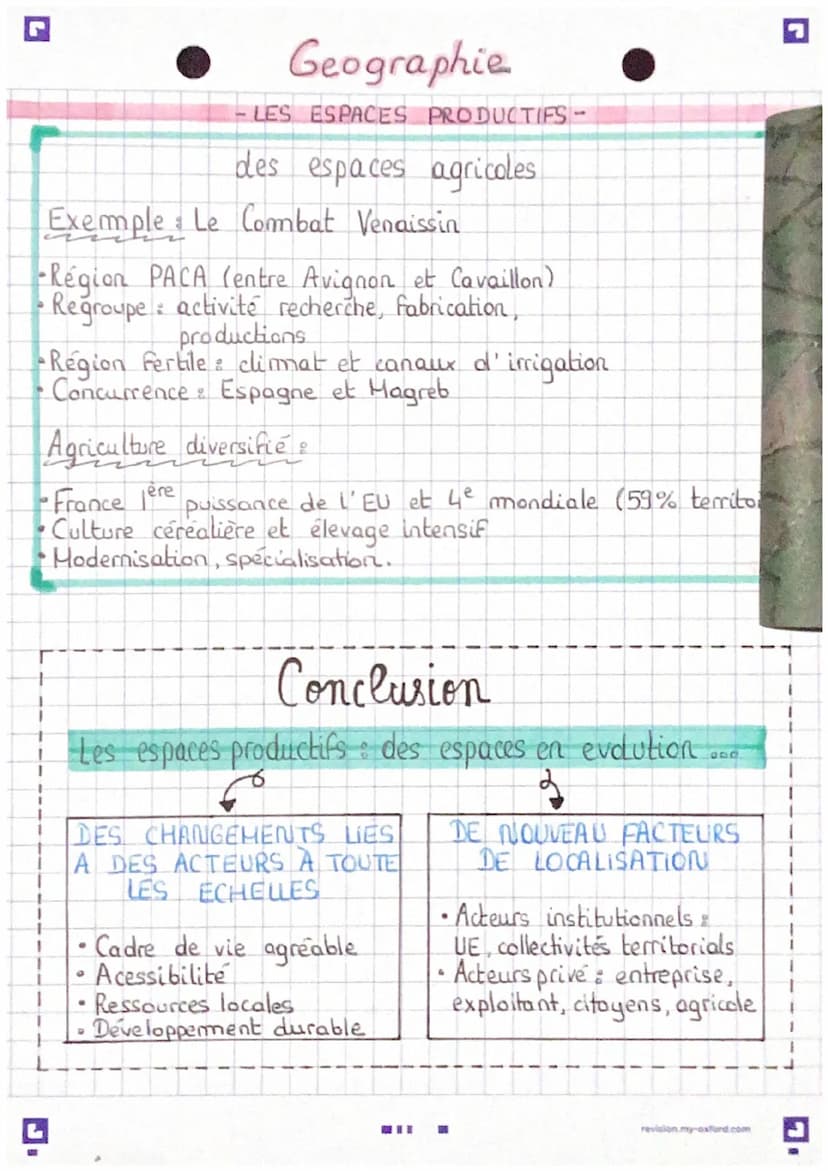 Geographie
- LES ESPACES PRODUCTIFS -
des espaces agricoles
Exemple : Le Combat Venaissin
• Région PACA (entre Avignon et Cavaillon)
• Regroupe : activité recherche, fabrication,
productions
• Région fertile : climat et canaux d'irrigation
• Concurrence : Espagne et Magreb
Agriculture diversifié :
• France 1ère puissance de l'EU et 4e mondiale (59%
• Culture céréalière et élevage intensif
• Modernisation, spécialisation.
Conclusion
Les espaces productifs : des espaces en evolution ...
DES CHANGEMENTS LIES
A DES ACTEURS À TOUTE
LES ECHELLES
• Cadre de vie agréable
• Acessibilité
• Ressources locales
• Développement durable
DE NOUVEAU FACTEURS
DE LOCALISATION
• Acteurs institutionnels :
UE, collectivités territorials
• Acteurs privé : entreprise,
exploitant, citoyens, agricole
revision.my-oxford.com